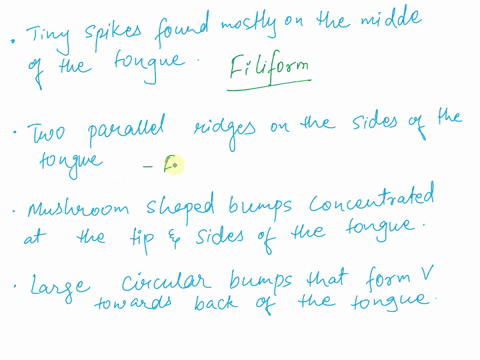 · Tiny spikes found mostly on the midde
of the tongue. Filiform
· Two parallel ridges on the sides of the
tongue – F
· Mushroom shaped bumps concentrated
at the tip & sides of the tongue.
· Large circular bumps that form V
towards back of the tongue.